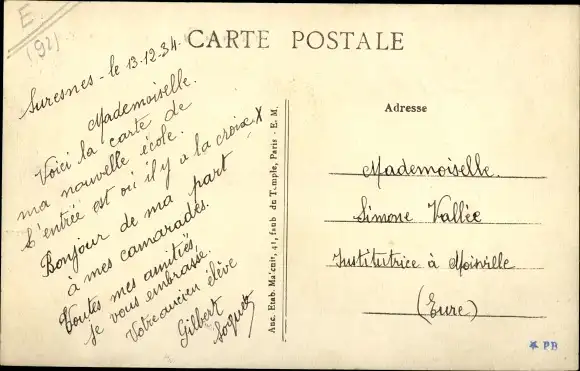 E
(92)
CARTE POSTALE
Suresnes - le 13.12.34.
Mademoiselle.
Voici la carte de
ma nouvelle école.
L'entrée est où il y a la croix X
Bonjour de ma part
à mes camarades.
Toutes mes amitiés,
je vous embrasse.
Votre ancien élève
Gilbert
Anc. Etab. Malcuit, 41, faub du Temple, Paris - E. M.
Adresse
Mademoiselle.
Simone Vallée
Institutrice à
(Eure)
* PB